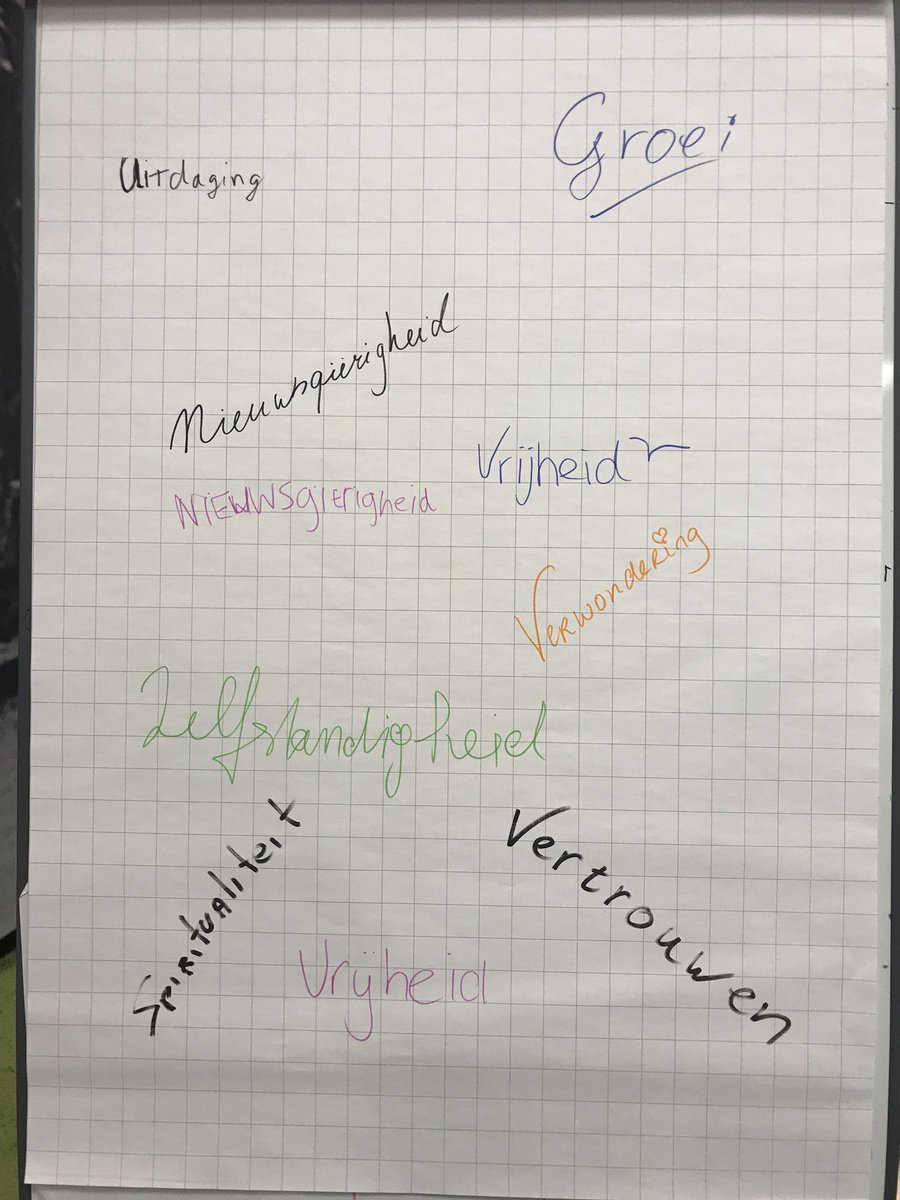 Groei
Uitdaging
Nieuwsgierigheid
Vrijheid
NIEUWSgierigheid
Verwondering
Zelfstandigheid
Spiritualiteit
Vertrouwen
Vrijheid